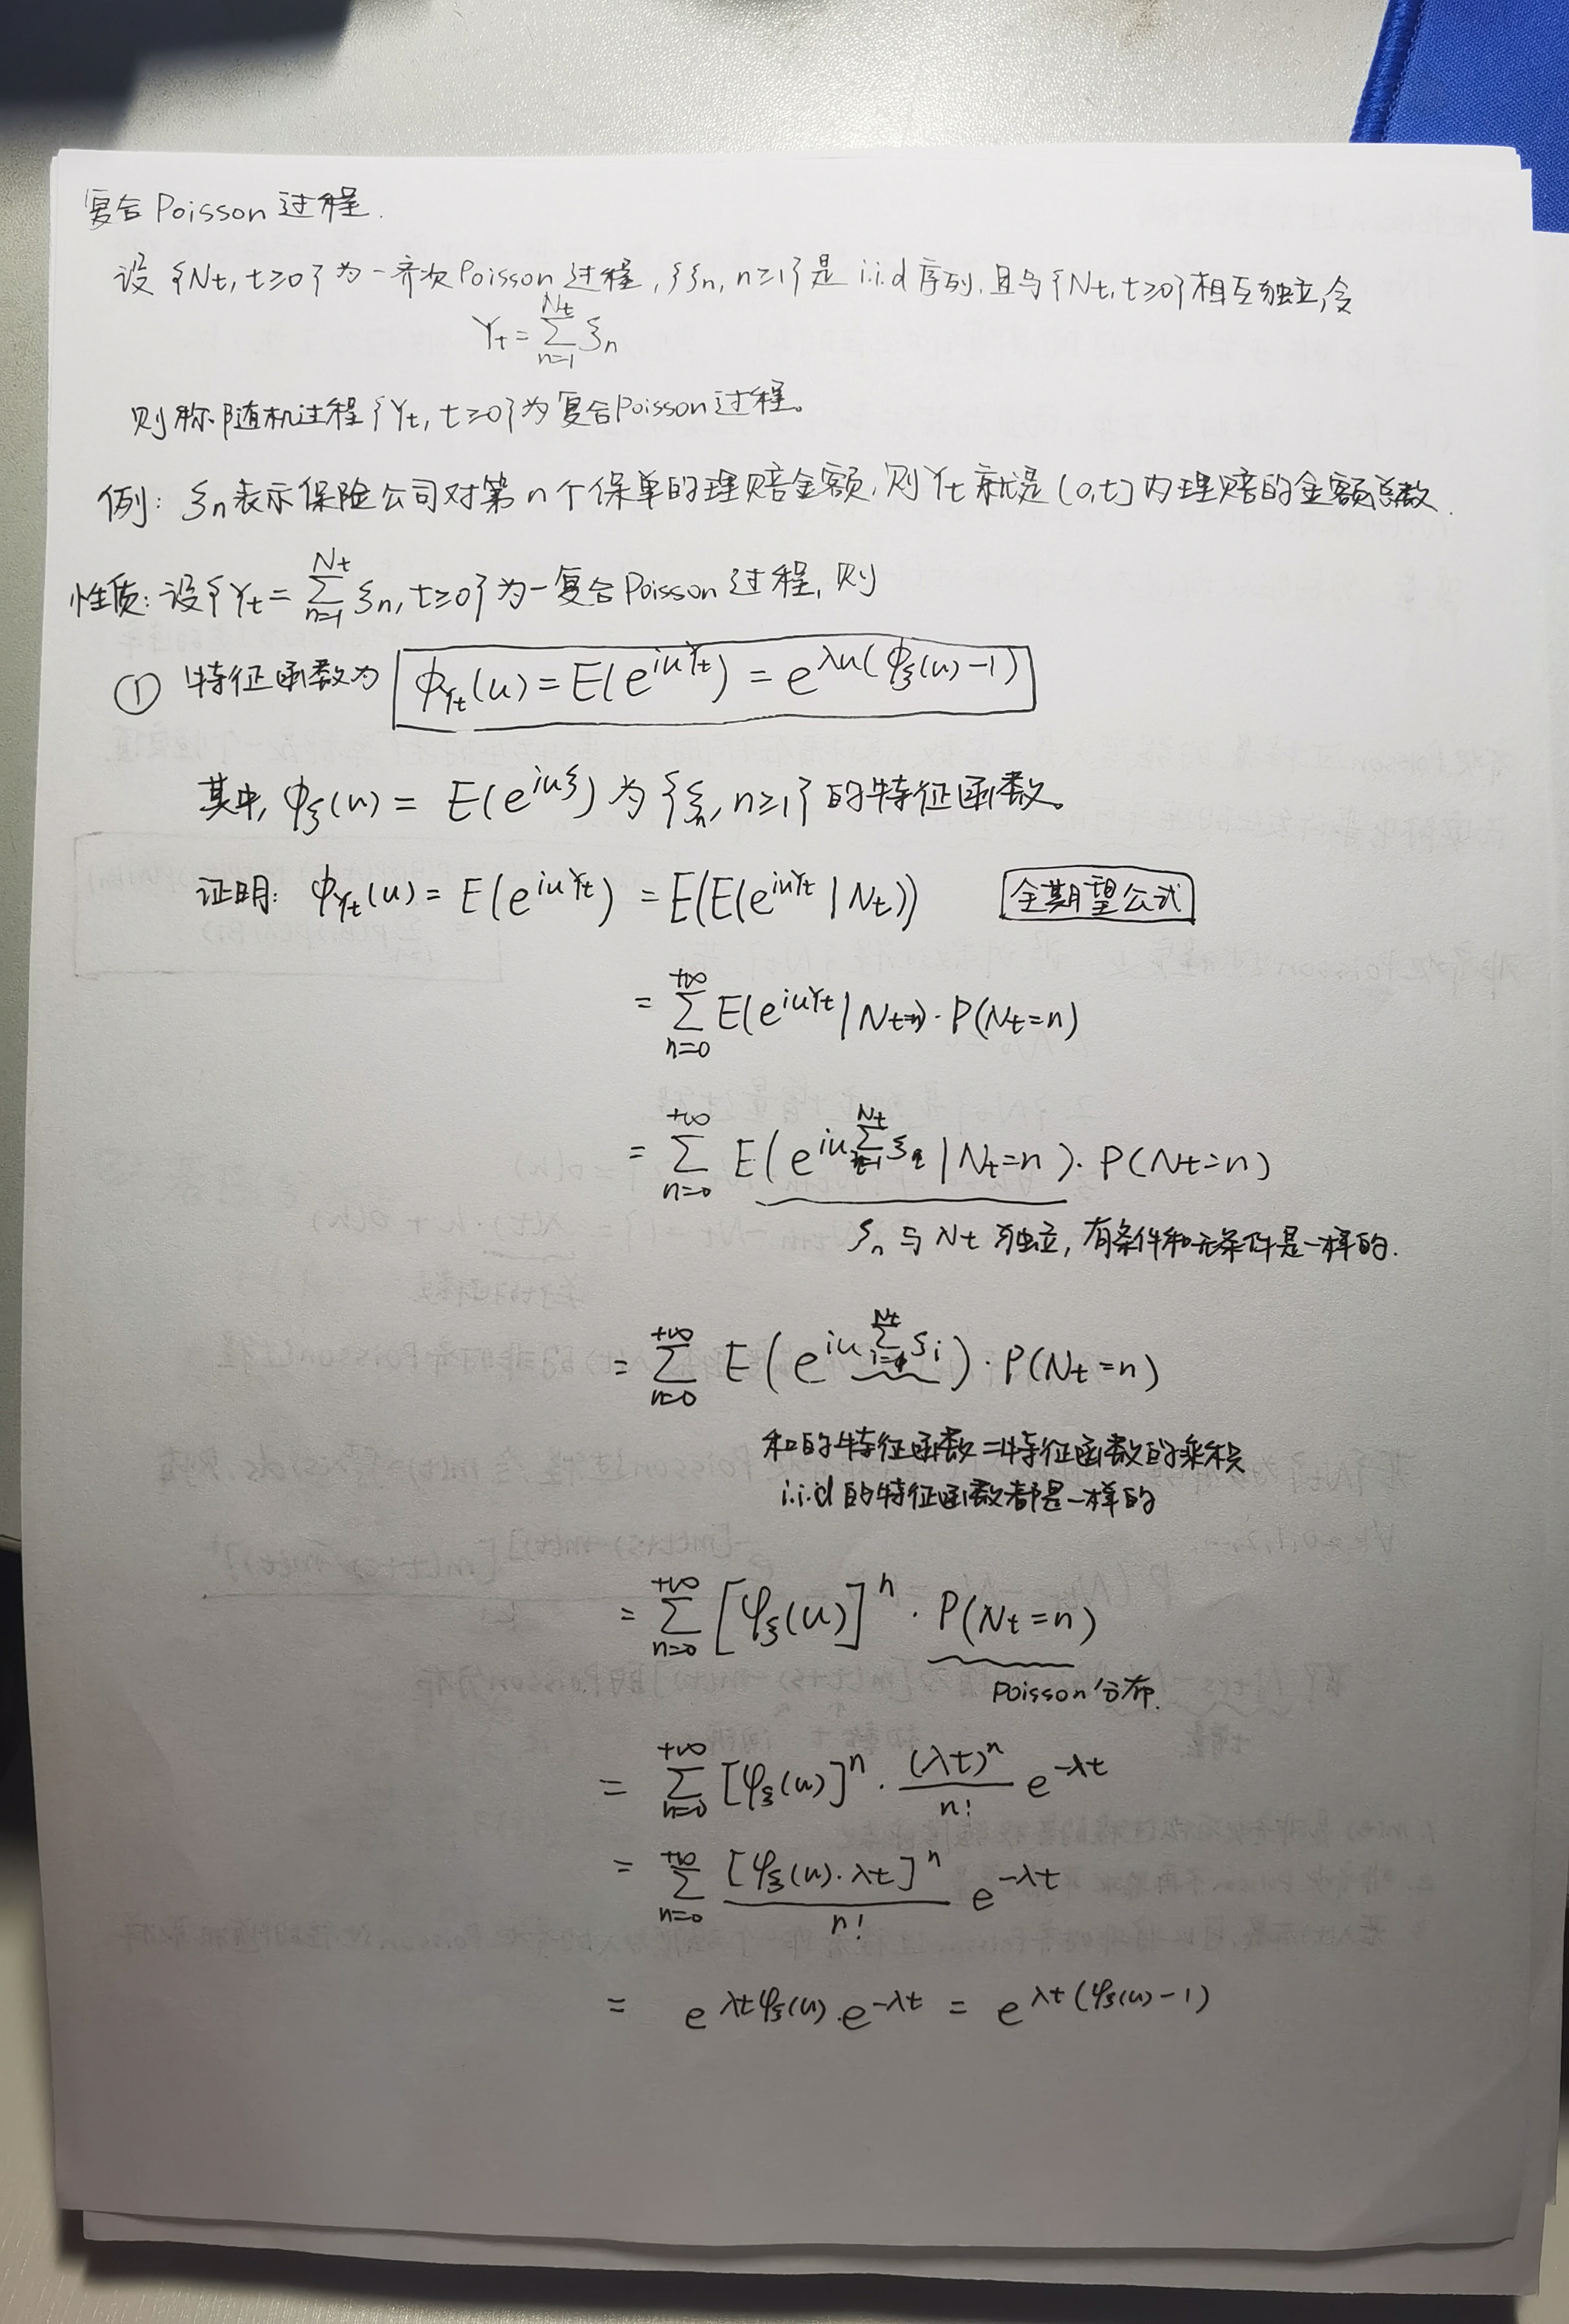 复合Poisson过程.
设{Nt, t≥0}为一齐次Poisson过程,{ξn, n≥1}是i.i.d序列,且与{Nt, t≥0}相互独立,令
Yt = ∑_{n=1}^{Nt} ξn
则称随机过程{Yt, t≥0}为复合Poisson过程。
例: ξn表示保险公司对第n个保单的理赔金额,则Yt就是(0,t]内理赔的金额总数.
性质: 设{Yt = ∑_{n=1}^{Nt} ξn, t≥0}为一复合Poisson过程,则
① 特征函数为 ϕ_{Yt}(u) = E(e^{iuYt}) = e^{λu(ϕξ(u)-1)}
其中, ϕξ(u) = E(e^{iuξ})为{ξn, n≥1}的特征函数。
证明: ϕ_{Yt}(u) = E(e^{iuYt}) = E(E(e^{iuYt}|Nt)) 全期望公式
= ∑_{n=0}^{+∞} E(e^{iuYt}|Nt=n)·P(Nt=n)
= ∑_{n=0}^{+∞} E(e^{iu∑_{i=1}^{Nt} ξi}|Nt=n)·P(Nt=n)
ξn与Nt独立,有条件和无条件是一样的.
= ∑_{n=0}^{+∞} E(e^{iu∑_{i=1}^{Nt} ξi})·P(Nt=n)
和的特征函数=特征函数的乘积
i.i.d的特征函数都是一样的
= ∑_{n=0}^{+∞} [φξ(u)]^n·P(Nt=n)
Poisson分布.
= ∑_{n=0}^{+∞} [φξ(u)]^n·(λt)^n/n! e^{-λt}
= ∑_{n=0}^{+∞} [φξ(u)·λt]^n/n! e^{-λt}
= e^{λtφξ(u)}·e^{-λt} = e^{λt(φξ(u)-1)}